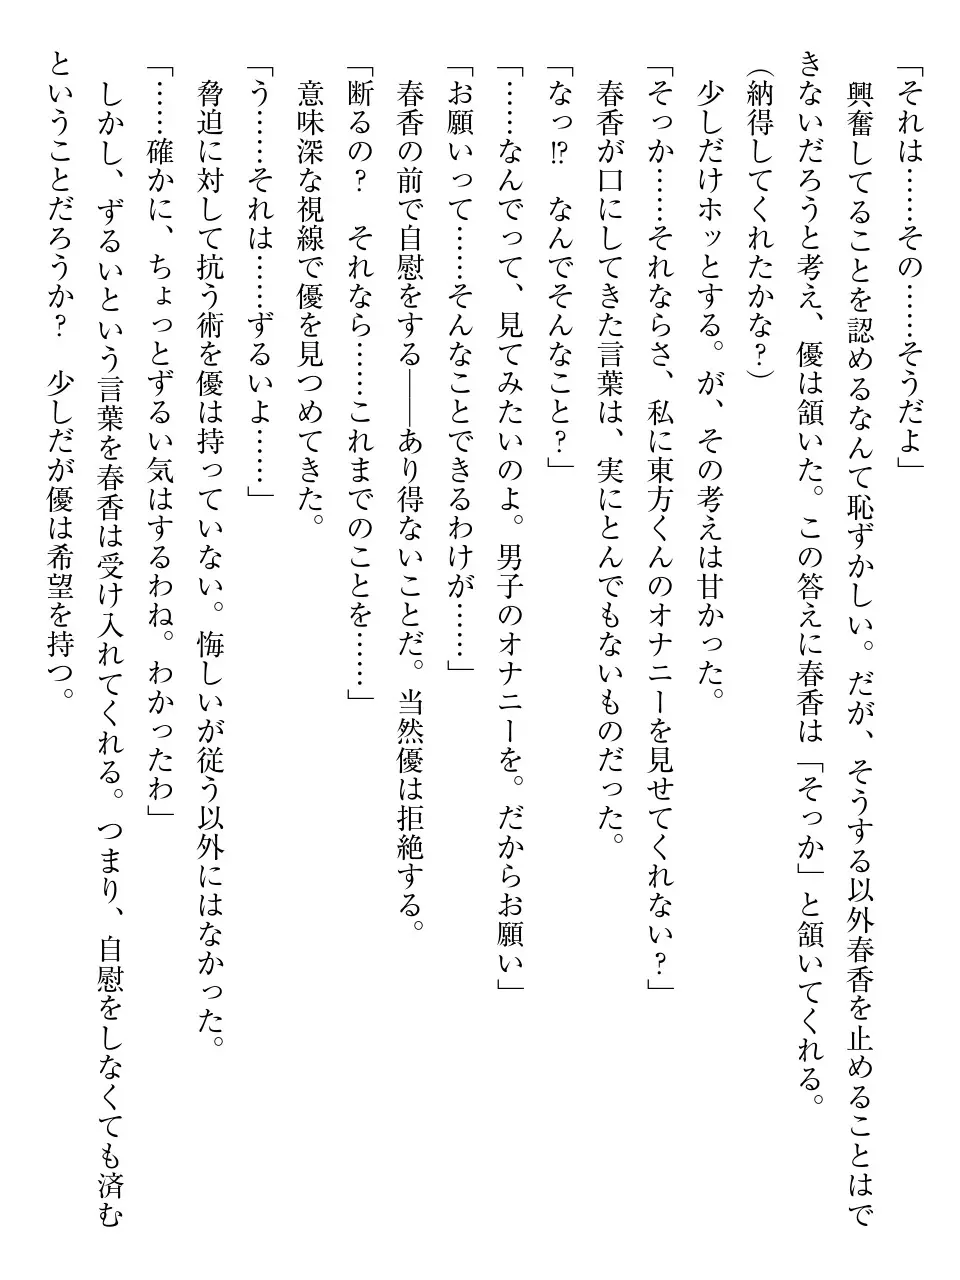 「それは……その……そうだよ」
興奮してることを認めるなんて恥ずかしい。だが、そうする以外春香を止めることはで
きないだろうと考え、優は頷いた。この答えに春香は「そっか」と頷いてくれる。
（納得してくれたかな？）
少しだけホッとする。が、その考えは甘かった。
「そっか……それならさ、私に東方くんのオナニーを見せてくれない？」
春香が口にしてきた言葉は、実にとんでもないものだった。
「なっ!?　なんでそんなこと？」
「……なんでって、見てみたいのよ。男子のオナニーを。だからお願い」
「お願いって……そんなことできるわけが……」
春香の前で自慰をする――あり得ないことだ。当然優は拒絶する。
「断るの？　それなら……これまでのことを……」
意味深な視線で優を見つめてきた。
「う……それは……ずるいよ……」
脅迫に対して抗う術を優は持っていない。悔しいが従う以外にはなかった。
「……確かに、ちょっとずるい気はするわね。わかったわ」
しかし、ずるいという言葉を春香は受け入れてくれる。つまり、自慰をしなくても済む
ということだろうか？　少しだが優は希望を持つ。